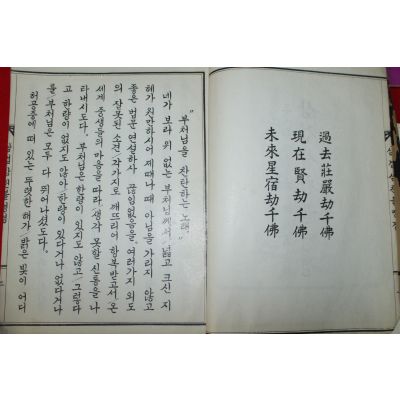 過去莊嚴劫千佛
現在賢劫千佛
未來星宿劫千佛
"부처님을 찬탄하는 노래"
네가 보라 위 없는 부처님께서 넓고 크신 지
혜가 원만하시어 제때나 때 아님을 가리지 않고
좋은 법문 연설하사 끊임없음을, 여러가지 외도
의 잘못된 소견 갖가지로 깨뜨리어 항복받고서 온
세계 중생들의 마음을 따라 생각 못할 신통을 나
타내시도다. 부처님은 한량이 있지도 않고 그렇다
고 한량이 없지도 않아 한량이 있다거나 없다거나
를 부처님은 모두 다 뛰어나셨도다.
허공중에 떠 있는 뚜렷한 해가 밝은 빛이 어디